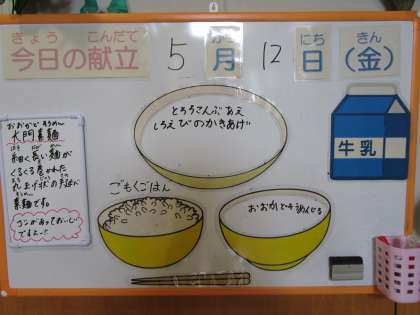 きょう こんだて
今日の献立
5
がつ
月
12
にち
日
きん
(金)
とろろこんぶあえ
しろえびのかきあげ
牛乳
おおかど そうめん
大門素麺
細く長い麺が
くるくる巻かれた
丸まげ状の手延べ
素麺です。
コシがあっておいしい
ですよ〜♪
ごもくごはん
おおかどそうめんじる